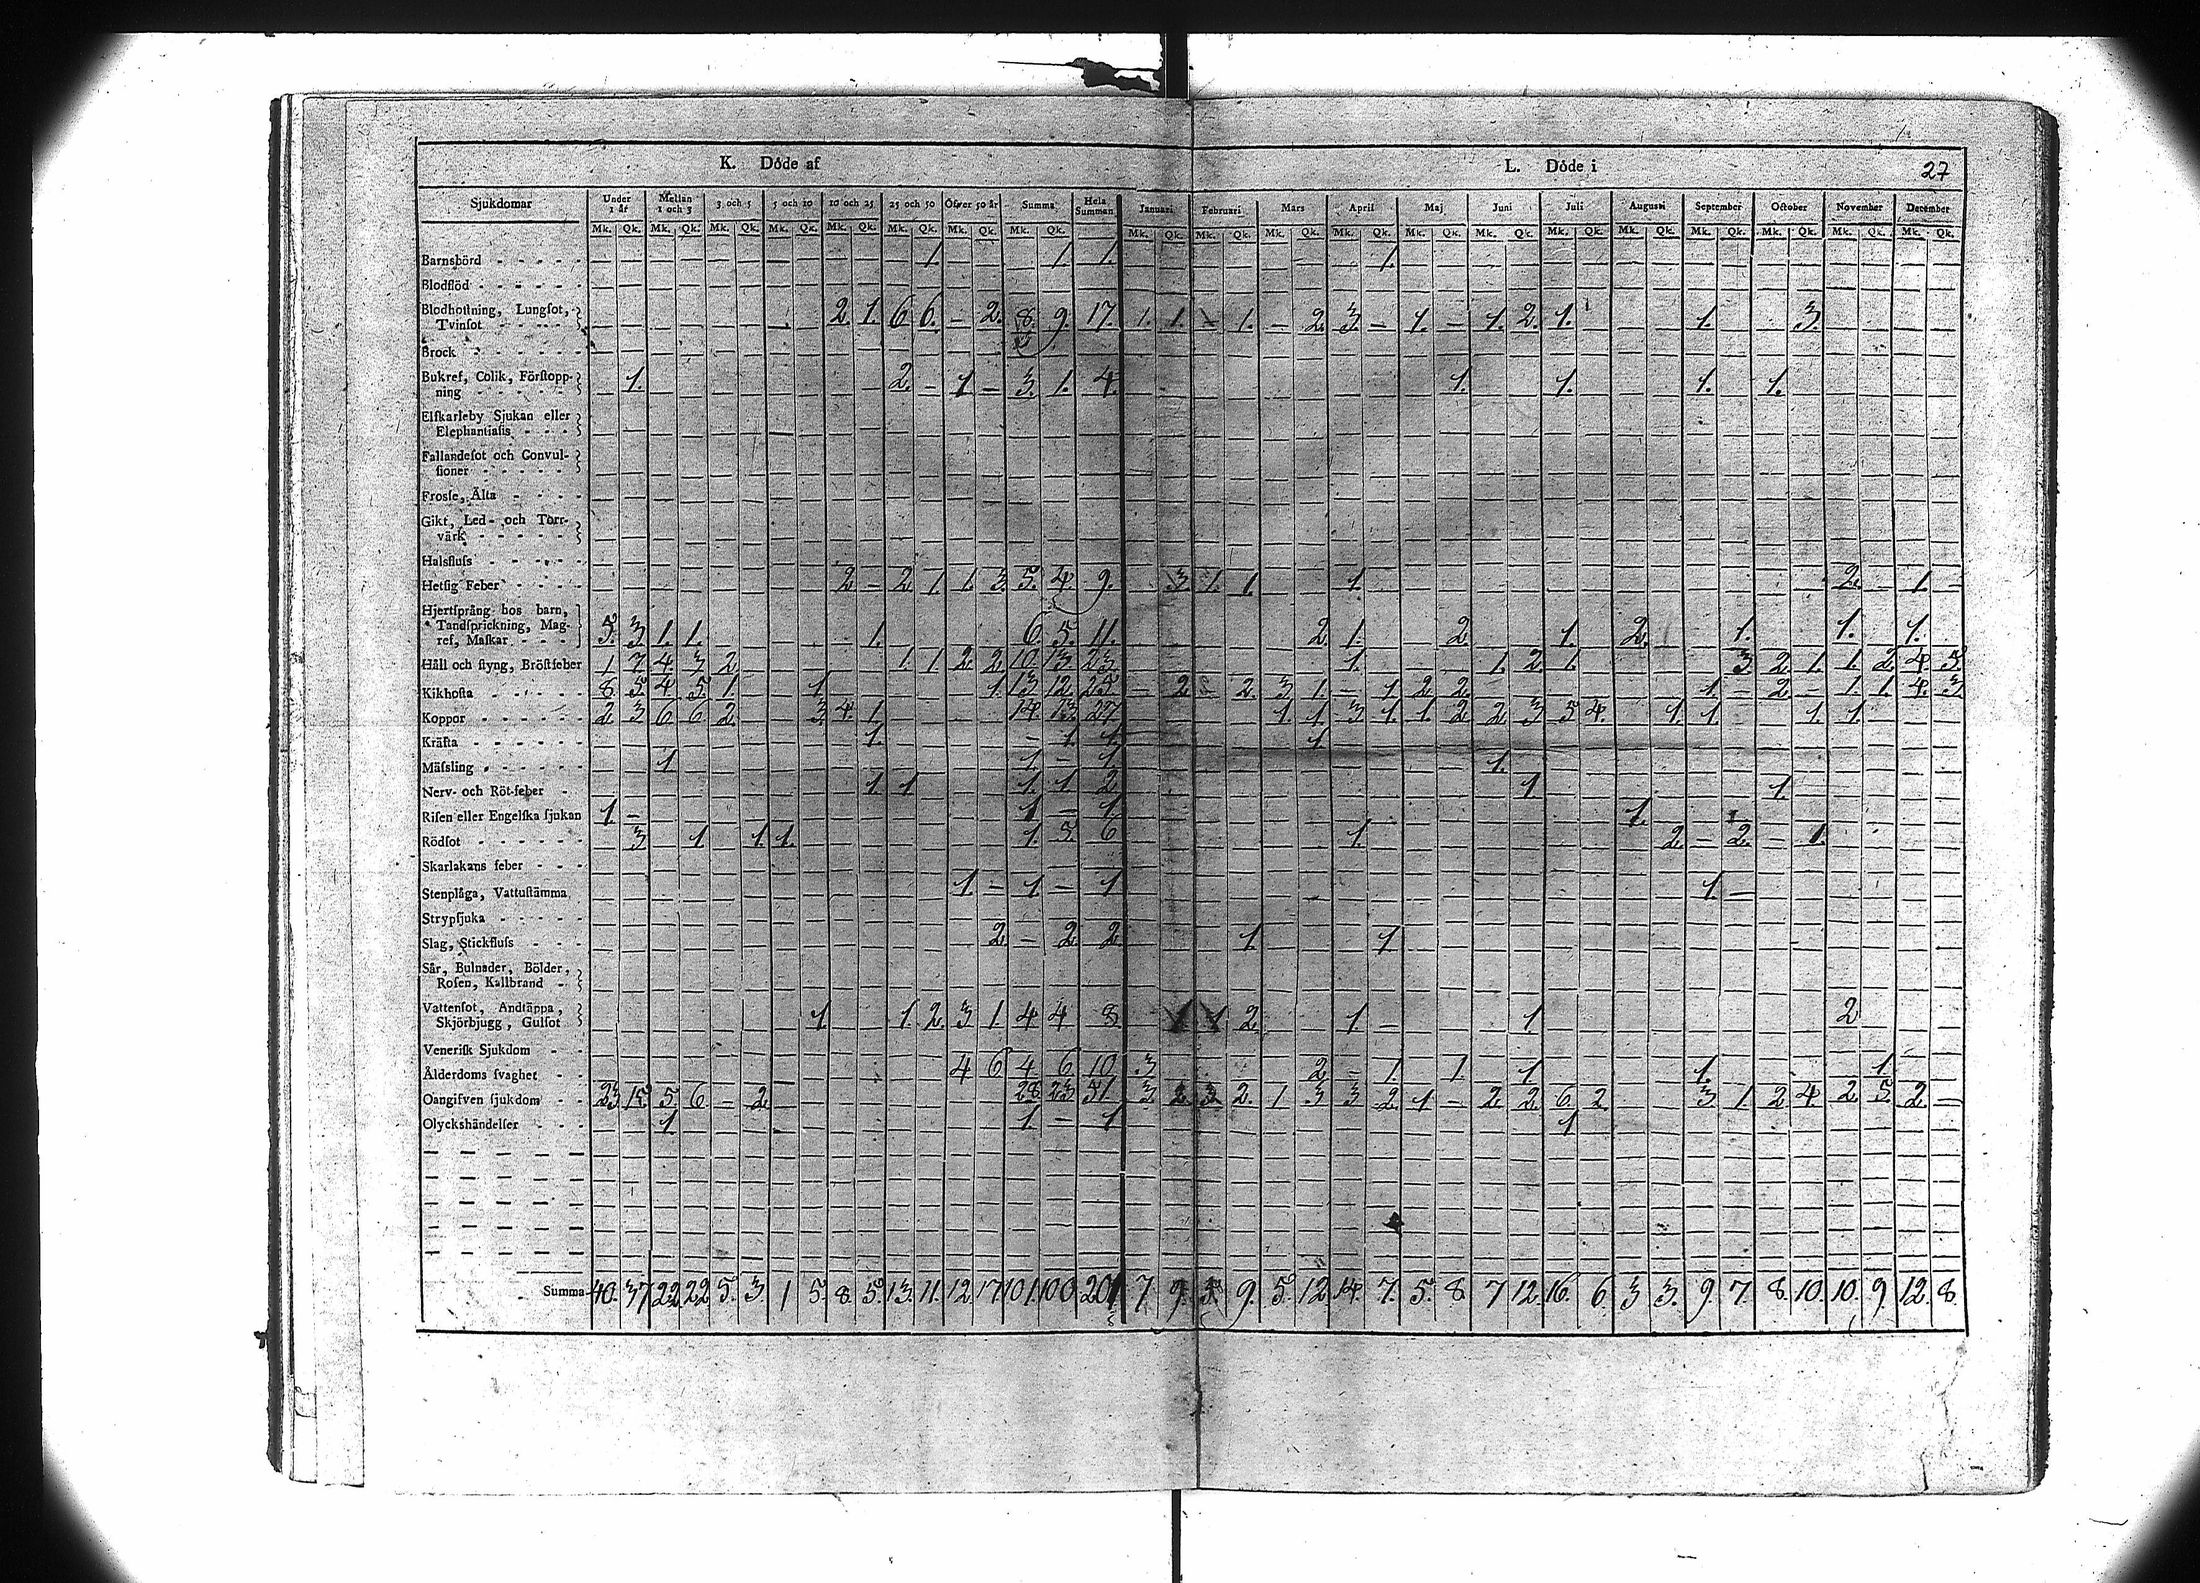 K. Döde af L. Döde i 27
Sjukdomar Under 1 år Mellan 1 och 3 3 och 5 5 och 10 10 och 25 25 och 50 Öfver 50 år Summa Hela Summan Januari Februari Mars April Maj Juni Juli Augusti September October November December
Mk. Qk. Mk. Qk. Mk. Qk. Mk. Qk. Mk. Qk. Mk. Qk. Mk. Qk. Mk. Qk. Mk. Qk. Mk. Qk. Mk. Qk. Mk. Qk. Mk. Qk. Mk. Qk. Mk. Qk. Mk. Qk. Mk. Qk. Mk. Qk. Mk. Qk. Mk. Qk.
Barnsbörd 1 1 1. 1.
Blodflöd
Blodhoſtning, Lungſot,
Tvinſot 2. 1. 6 6. – 2. 8. 9. 17. 1. 1. – 1. – 2. 3. – 1. – 1. 2. 1. 1. 3.
Brock
Bukref, Colik, Förſtopp-
ning 1. 2. – 1 – 3. 1. 4. 1. 1. 1. 1.
Elſkarleby Sjukan eller
Elephantiaſis
Fallandeſot och Convul-
ſioner
Froſſe, Älta
Gikt, Led- och Torr-
värk
Halsfluſs
Hetſig Feber 2 – 2. 1. 1. 3. 5. 4. 9. 3. 1. 1. 1. 2. 1. –
Hjertſprång hos barn,
Tandſprickning, Mag-
ref, Maſkar 5. 3 1. 1. 1. 6. 5. 11. 2. 1. 2. 1. 2. 1. 1. 1.
Håll och ſtyng, Bröſtfeber 1 7 4. 3 2 1. 1 2. 2. 10. 13. 23. 1. 1. 2. 1. 3. 2. 1. 1. 2. 4. 5.
Kikhoſta 8. 5. 4. 5. 1. 1. 1. 13. 12. 25. – 2. – 2. 3 1. – 1. 2. 2. 1. – 2. – 1. 1. 4. 3.
Koppor 2. 3 6 6 2. 3. 4. 1. 14. 13. 27 1. 1. 3. 1. 1. 2. 2. 3. 5. 4. 1. 1. 1. 1.
Kräfta 1. – 1. 1. 1.
Mäſsling 1. 1. – 1 1.
Nerv- och Röt-feber 1. 1 1. 1. 2 1. 1.
Riſen eller Engelſka ſjukan 1. – 1. – 1. 1.
Rödſot 3. 1 1. 1. 1. 5. 6 1. 2. – 2. – 1.
Skarlakans feber
Stenplåga, Vattuſtämma 1 – 1 – 1 1. –
Strypſjuka
Slag, Stickfluſs 2 – 2. 2 1. 1.
Sår, Bulnader, Bölder,
Roſen, Kallbrand
Vattenſot, Andtäppa,
Skjörbjugg, Gulſot 1. 1. 2. 3 1. 4 4 8. 1. 1 2. 1. – 1 2
Veneriſk Sjukdom
Ålderdoms ſvaghet 4 6 4 6 10 3. 2 – 1. 1. 1 1. 1.
Oangifven ſjukdom 23 15. 5 6. – 2. 28. 23. 51. 3. 2. 3. 2. 1 3 3 2. 1 – 2. 2. 6. 2. 3. 1. 2 4. 2. 5. 2. –
Olyckshändelſer 1. 1. – 1 1
Summa 40. 37 22 22 5. 3 1 5. 8. 5. 13. 11. 12. 17 101. 100 201 7 9. 5. 9. 5. 12. 14. 7. 5. 8. 7 12. 16. 6. 3 3. 9. 7. 8. 10. 10. 9. 12. 8.